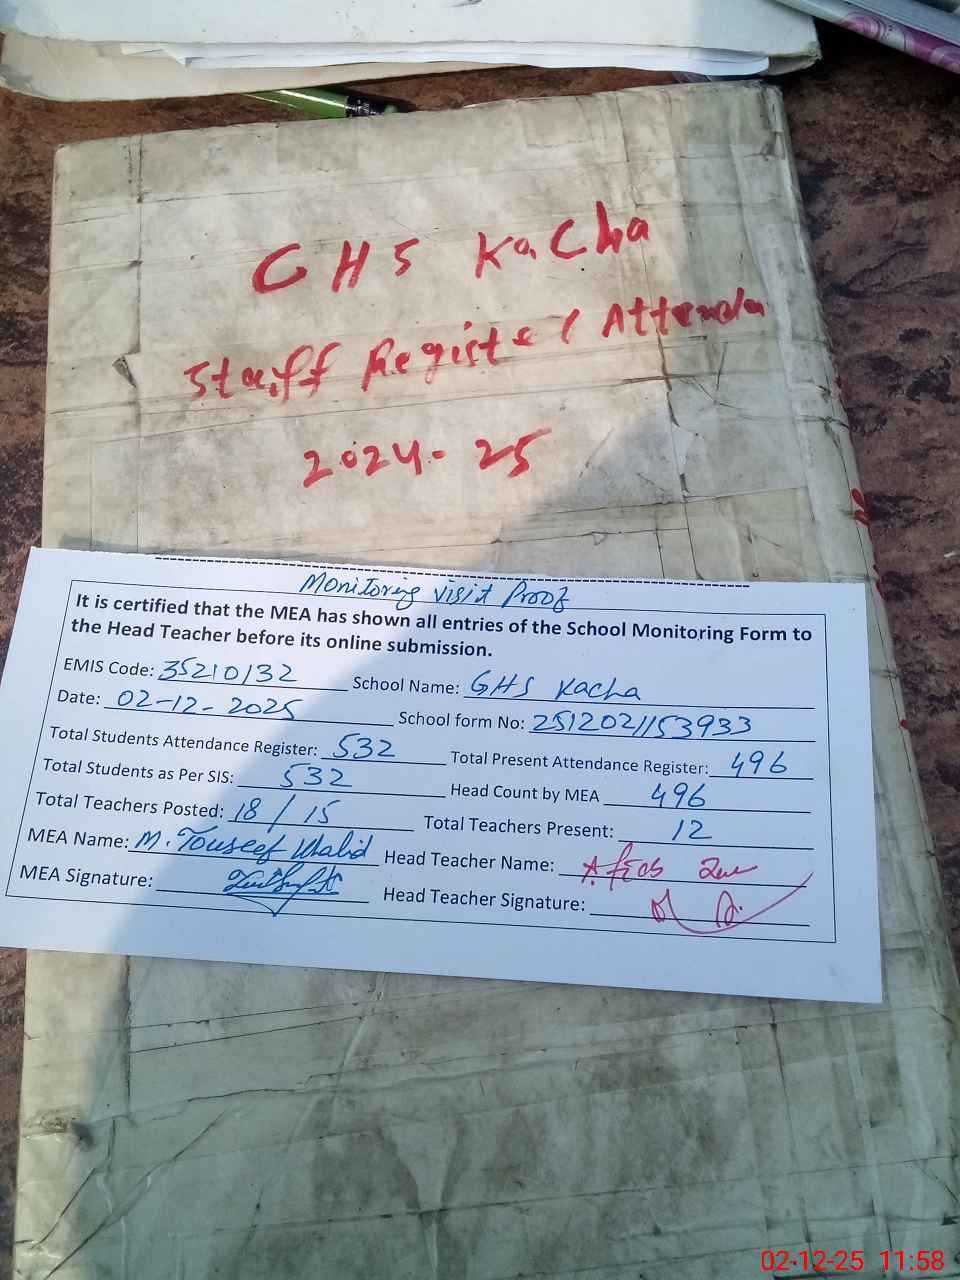 GHS Kacha
Staff Register Attenda
2024-25
Monitoring visit Proof
It is certified that the MEA has shown all entries of the School Monitoring Form to
the Head Teacher before its online submission.
EMIS Code: 35210132 School Name: GHS Kacha
Date: 02-12-2025 School form No: 2512021153933
Total Students Attendance Register: 532 Total Present Attendance Register: 496
Total Students as Per SIS: 532 Head Count by MEA 496
Total Teachers Posted: 18/15 Total Teachers Present: 12
MEA Name: M. Touseef Khalid Head Teacher Name:
MEA Signature: Head Teacher Signature:
02-12-25 11:58